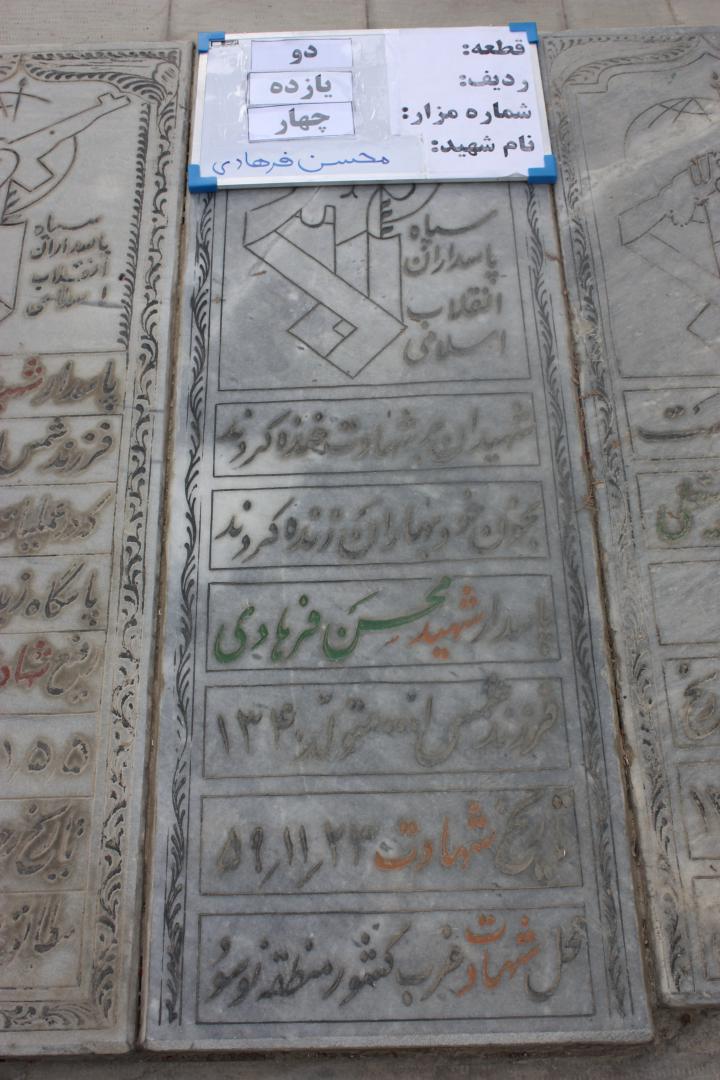 قطعه: دو
ردیف: یازده
شماره مزار: چهار
نام شهید: محسن فرهادی
سپاه
پاسداران
انقلاب
اسلامی
شهیدان بر شهادت خنده کردند
بخون خود بهاران زنده کردند
پاسدار شهید محسن فرهادی
فرزند شمس اله متولد ۱۳۴۰
تاریخ شهادت ۵۹٫۱۱٫۲۳
محل شهادت غرب کشور منطقه نوسود
سپاه
پاسداران
انقلاب
اسلامی
پاسدار
فرزند شمس
در عملیات
پاسگاه
رفیع
۱۵۵
تاریخ